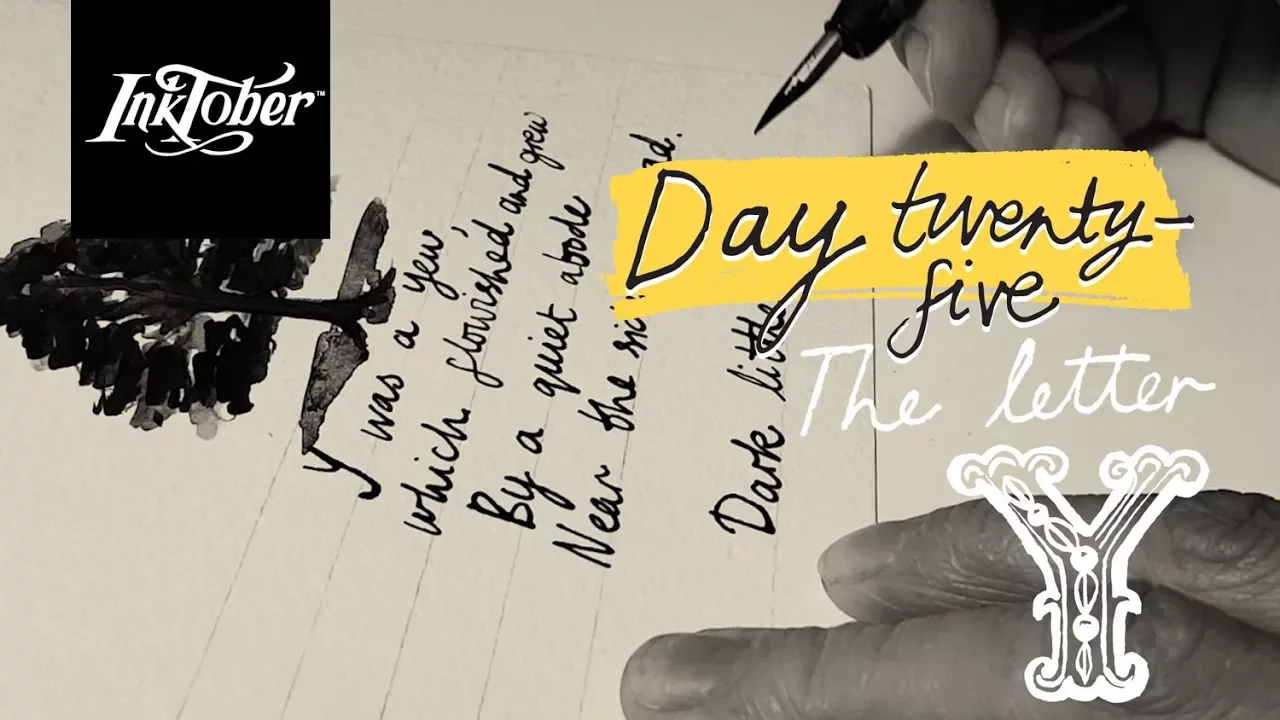 InkTober™
Y was a yew,
which flourished and grew
By a quiet abode
Near the
Dark little
Day twenty-
five
The letter
Y